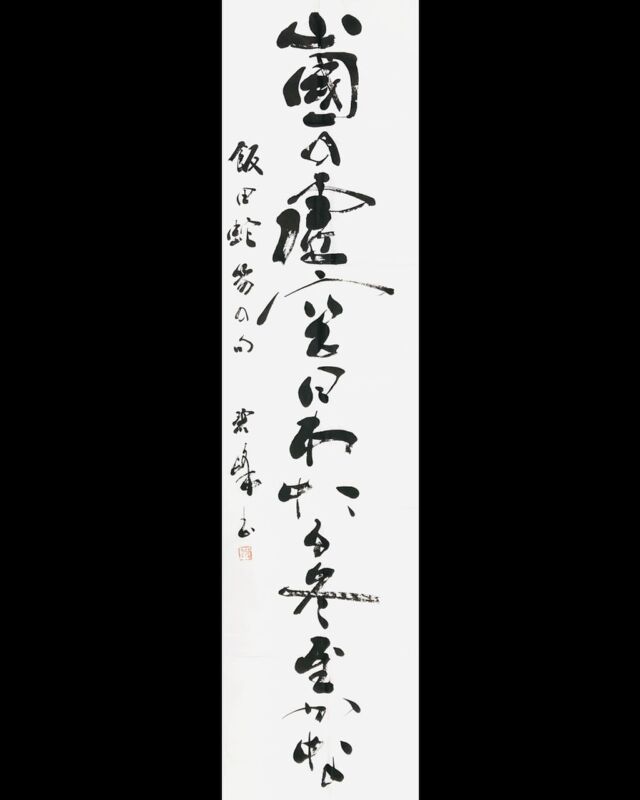 山國の虚空日わたる冬至かな
飯田蛇笏の句